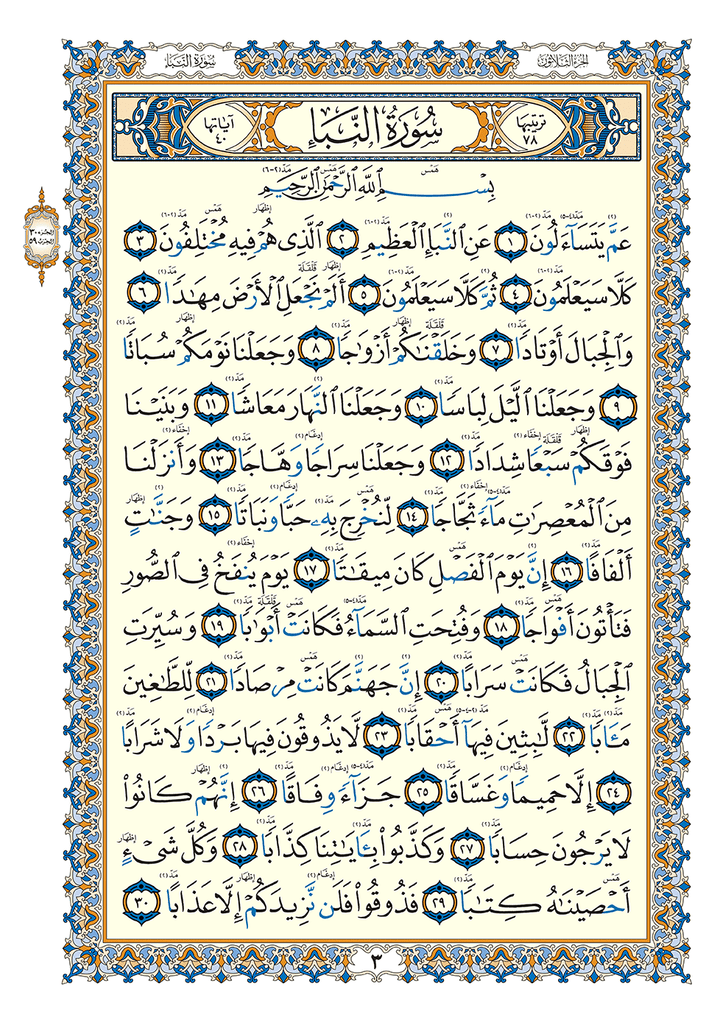 الجزء الثلاثون
سورة النبأ
ترتيبها ٧٨
سُورَةُ النَّبَإِ
آياتها ٤٠
بِسْمِ ٱللَّهِ ٱلرَّحْمَٰنِ ٱلرَّحِيمِ
عَمَّ يَتَسَآءَلُونَ ١ عَنِ ٱلنَّبَإِ ٱلْعَظِيمِ ٢ ٱلَّذِى هُمْ فِيهِ مُخْتَلِفُونَ ٣
كَلَّا سَيَعْلَمُونَ ٤ ثُمَّ كَلَّا سَيَعْلَمُونَ ٥ أَلَمْ نَجْعَلِ ٱلْأَرْضَ مِهَٰدًا ٦
وَٱلْجِبَالَ أَوْتَادًا ٧ وَخَلَقْنَٰكُمْ أَزْوَٰجًا ٨ وَجَعَلْنَا نَوْمَكُمْ سُبَاتًا
٩ وَجَعَلْنَا ٱلَّيْلَ لِبَاسًا ١٠ وَجَعَلْنَا ٱلنَّهَارَ مَعَاشًا ١١ وَبَنَيْنَا
فَوْقَكُمْ سَبْعًا شِدَادًا ١٢ وَجَعَلْنَا سِرَاجًا وَهَّاجًا ١٣ وَأَنزَلْنَا
مِنَ ٱلْمُعْصِرَٰتِ مَآءً ثَجَّاجًا ١٤ لِّنُخْرِجَ بِهِۦ حَبًّا وَنَبَاتًا ١٥ وَجَنَّٰتٍ
أَلْفَافًا ١٦ إِنَّ يَوْمَ ٱلْفَصْلِ كَانَ مِيقَٰتًا ١٧ يَوْمَ يُنفَخُ فِى ٱلصُّورِ
فَتَأْتُونَ أَفْوَاجًا ١٨ وَفُتِحَتِ ٱلسَّمَآءُ فَكَانَتْ أَبْوَٰبًا ١٩ وَسُيِّرَتِ
ٱلْجِبَالُ فَكَانَتْ سَرَابًا ٢٠ إِنَّ جَهَنَّمَ كَانَتْ مِرْصَادًا ٢١ لِّلطَّٰغِينَ
مَـَٔابًا ٢٢ لَّٰبِثِينَ فِيهَآ أَحْقَابًا ٢٣ لَّا يَذُوقُونَ فِيهَا بَرْدًا وَلَا شَرَابًا
٢٤ إِلَّا حَمِيمًا وَغَسَّاقًا ٢٥ جَزَآءً وِفَاقًا ٢٦ إِنَّهُمْ كَانُوا۟
لَا يَرْجُونَ حِسَابًا ٢٧ وَكَذَّبُوا۟ بِـَٔايَٰتِنَا كِذَّابًا ٢٨ وَكُلَّ شَىْءٍ
أَحْصَيْنَٰهُ كِتَٰبًا ٢٩ فَذُوقُوا۟ فَلَن نَّزِيدَكُمْ إِلَّا عَذَابًا ٣٠
الجزء ٣٠
الحزب ٥٩
٣